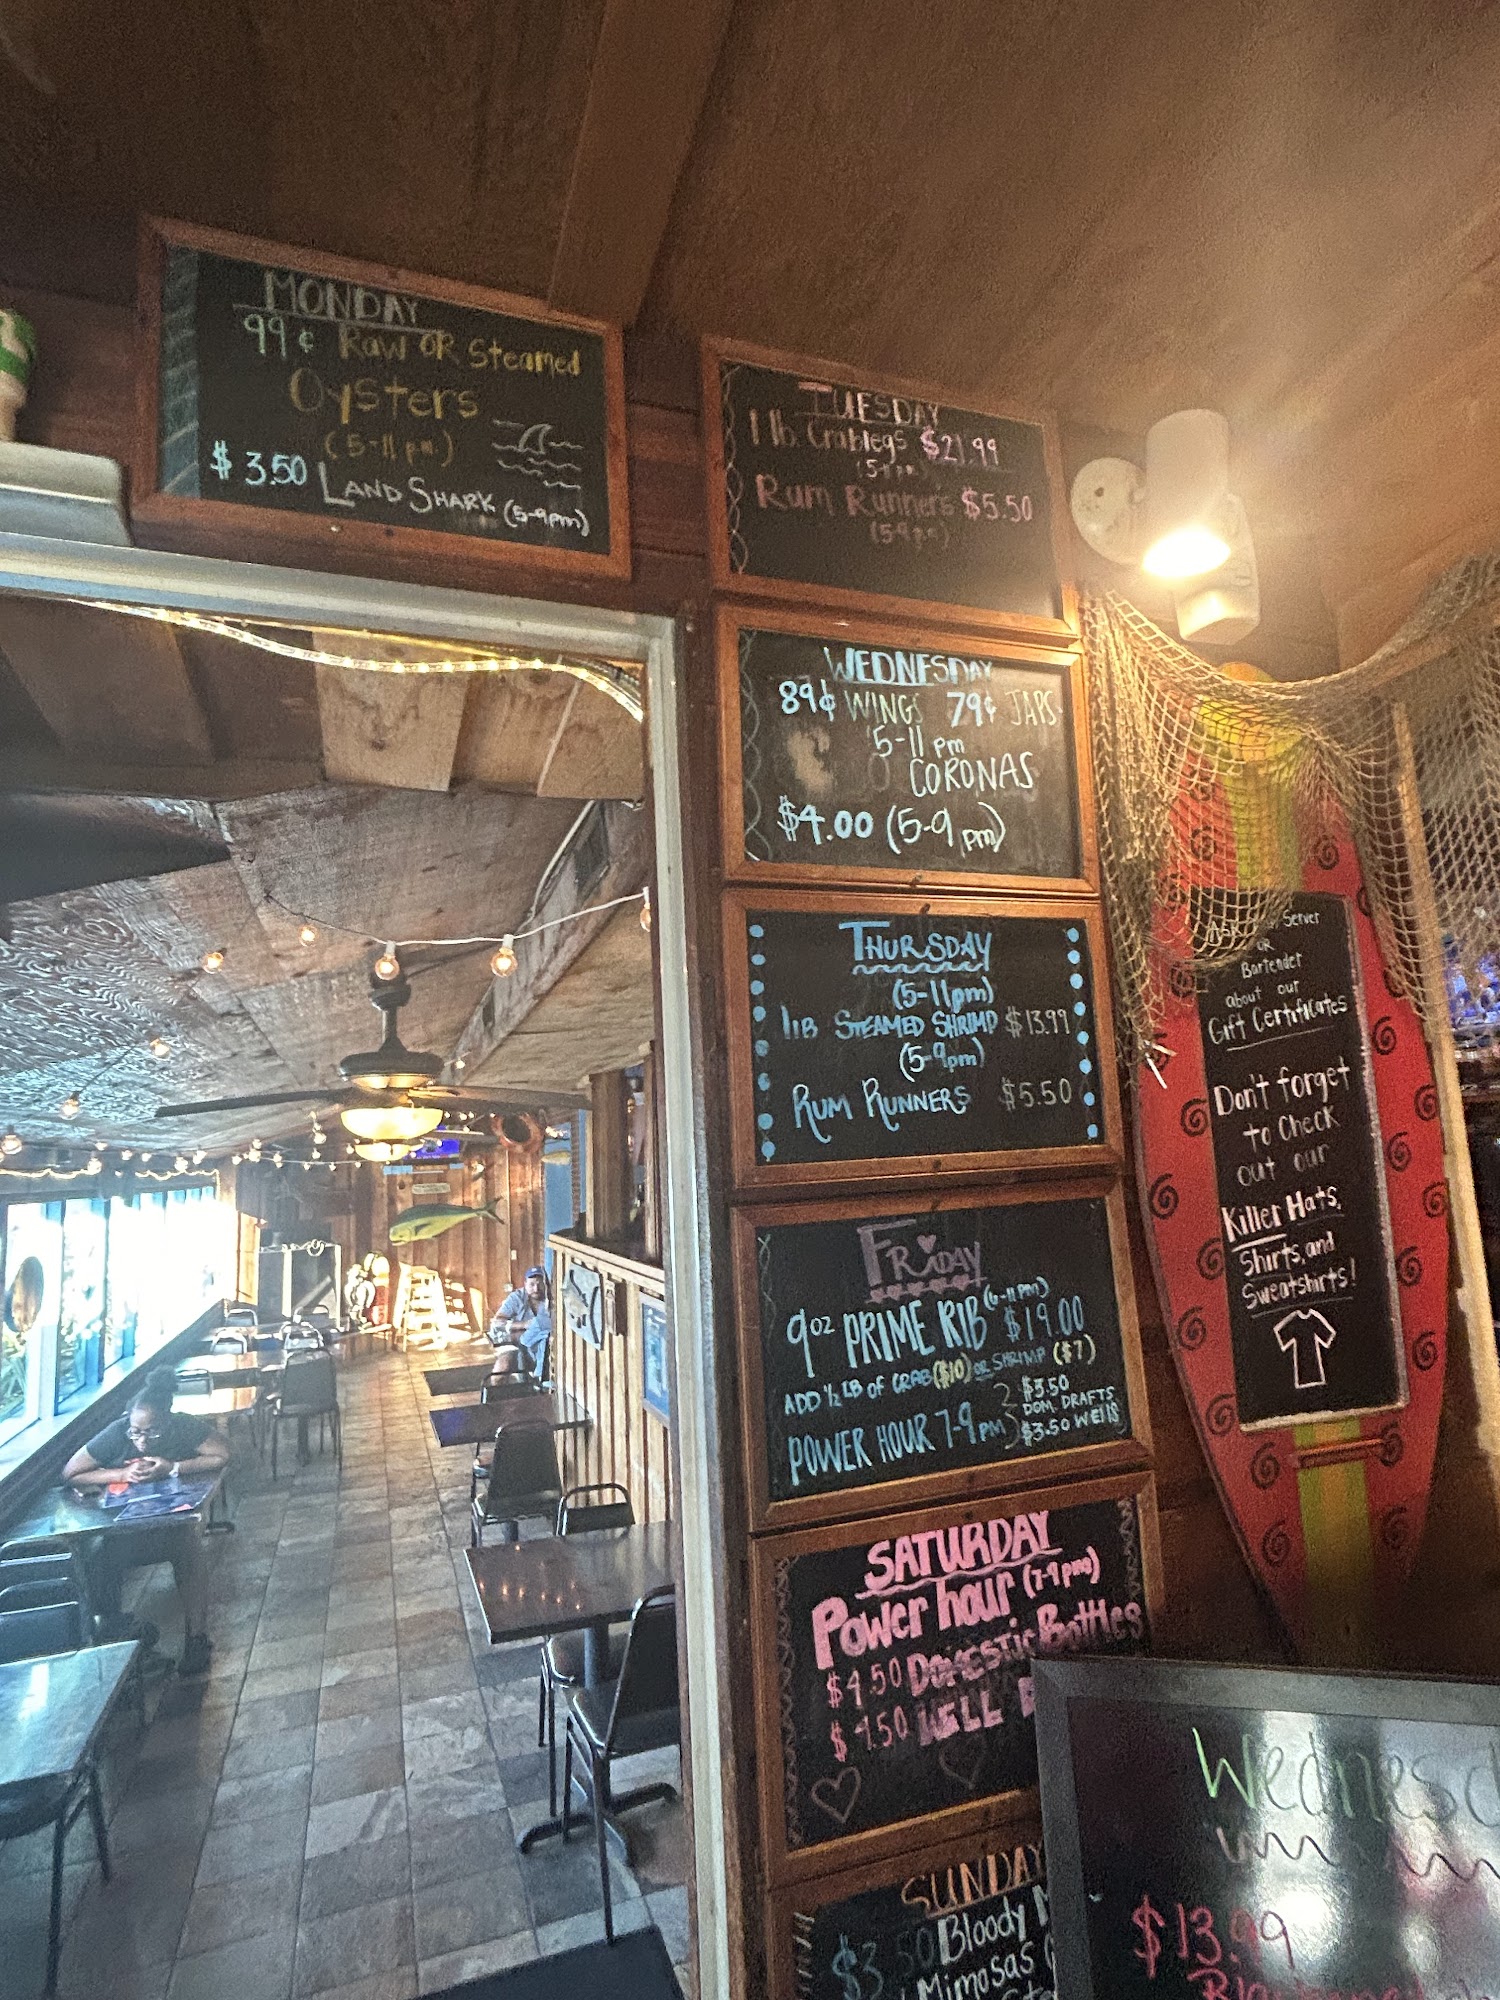 MONDAY
99¢ Raw OR Steamed
Oysters
(5-11 pm.)
$3.50 LAND SHARK (5-9pm)
TUESDAY
1 lb. Crablegs $21.99
Rum Runners $5.50
(5-9 pm)
WEDNESDAY
89¢ WINGS 79¢ JAPS
5-11 pm
CORONAS
$4.00 (5-9 pm)
THURSDAY
(5-11pm)
1 LB STEAMED SHRIMP $13.99
(5-9pm)
RUM RUNNERS $5.50
FRIDAY
9oz PRIME RIB $19.00
ADD ½ LB OF CRAB ($10) OR SHRIMP ($7)
$3.50
DOM. DRAFTS
POWER HOUR 7-9 PM $3.50 WELLS
SATURDAY
Power hour (7-9pm)
$4.50 DOMESTIC Bottles
$4.50 WELL
SUNDAY
Bloody
Mimosas
Ask Server
OR
Bartender
about our
Gift Certificates
Don't forget
to Check
out our
Killer Hats,
Shirts, and
Sweatshirts!
$13.99